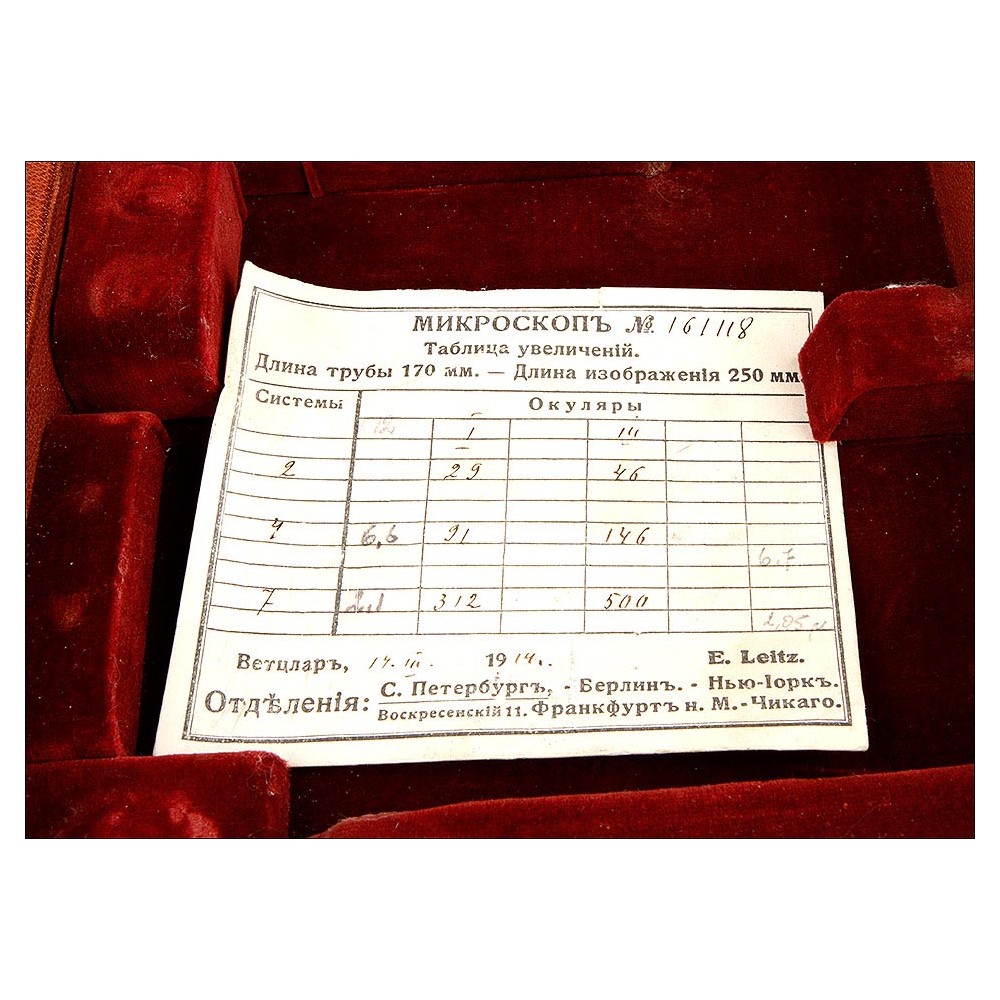 МИКРОСКОПЪ № 161118
Таблица увеличеній.
Длина трубы 170 мм. — Длина изображенія 250 мм.
Системы Окуляры
I III
2 29 46
4 6,6 91 146
6.7
7 312 500
2,05
Ветцларъ, 14. III. 1914. E. Leitz.
Отдѣленія: С. Петербургъ, - Берлинъ. - Нью-Іоркъ.
Воскресенскій 11. Франкфуртъ н. М.-Чикаго.